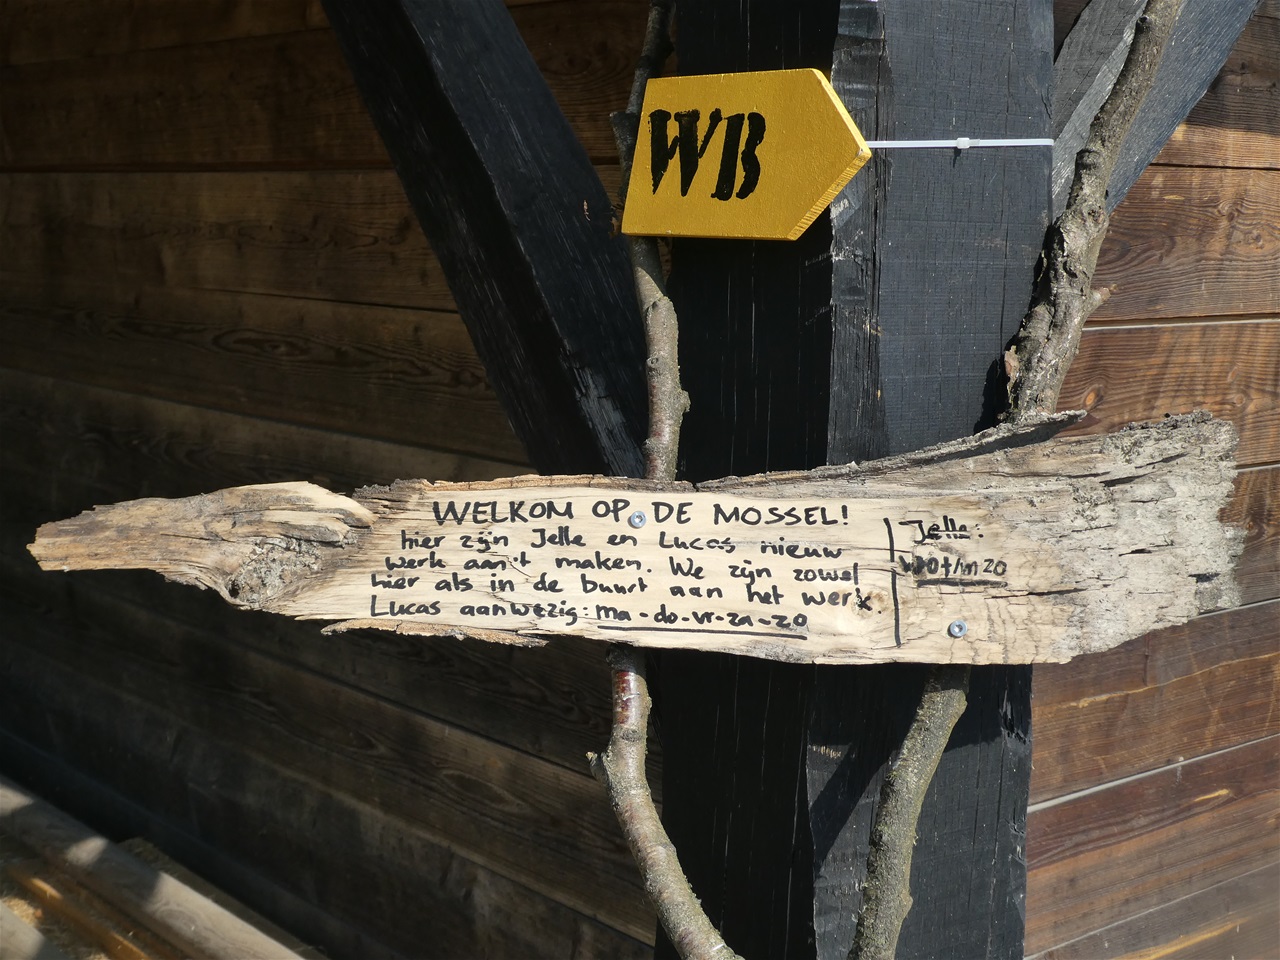 WB
WELKOM OP DE MOSSEL!
hier zijn Jelle en Lucas nieuw
werk aan 't maken. We zijn zowel
hier als in de buurt aan het werk.
Lucas aanwezig: ma - do - vr - za - zo
Jelle:
wo t/m zo